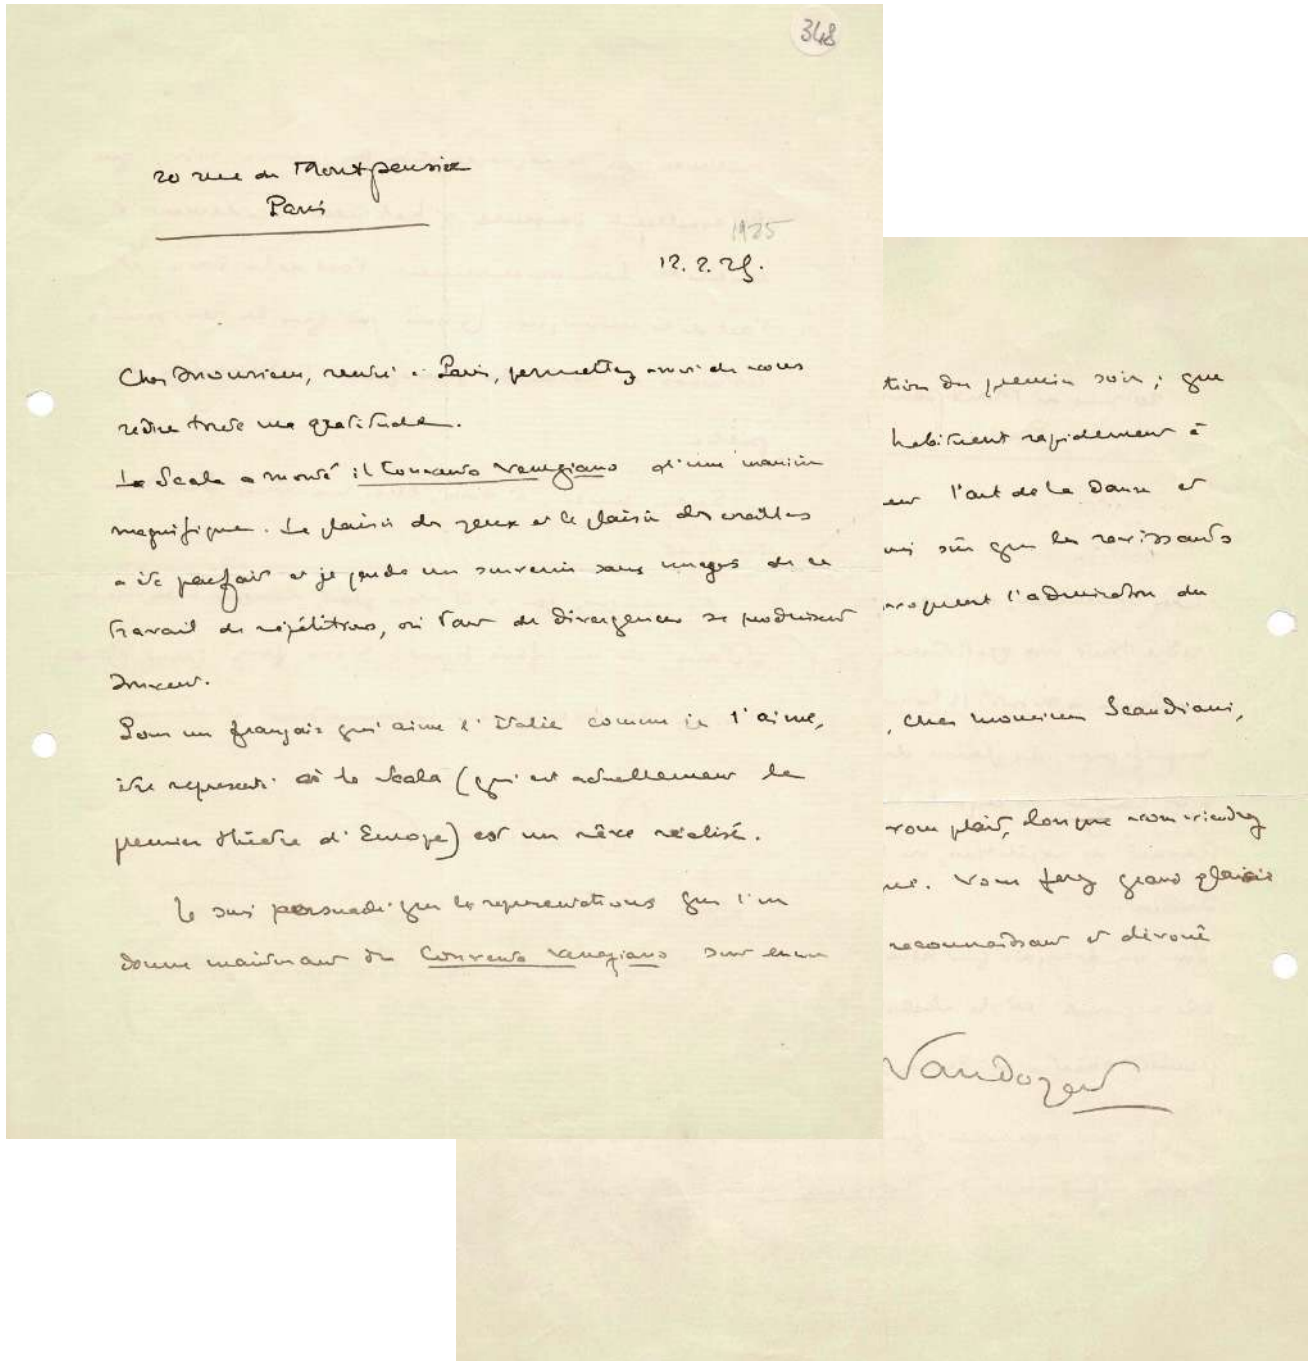 348
20 rue de Montpensier
Paris
1925
12. 2. 25.
Cher Monsieur, rentré à Paris, permettez-moi de vous
redire toute ma gratitude.
La Scala a monté il Convento Veneziano d'une manière
magnifique. Le plaisir des yeux et le plaisir des oreilles
a été parfait et je garde un souvenir sans nuages de ce
travail de répétitions, où tant de divergences se produisent
souvent.
Pour un français qui aime l'Italie comme je l'aime,
être representé à la Scala (qui est actuellement le
premier théâtre d'Europe) est un rêve réalisé.
Je suis persuadé que les représentations que l'on
donne maintenant du Convento Veneziano sont encore
tion du premier soir ; que
habituent rapidement à
l'art de la Danse et
sûr que les ravissants
l'admiration du
, cher monsieur Scandiani,
vous plait, lorsque vous viendrez
. Vous ferez grand plaisir
reconnaissant et dévoué
Vaudoyer